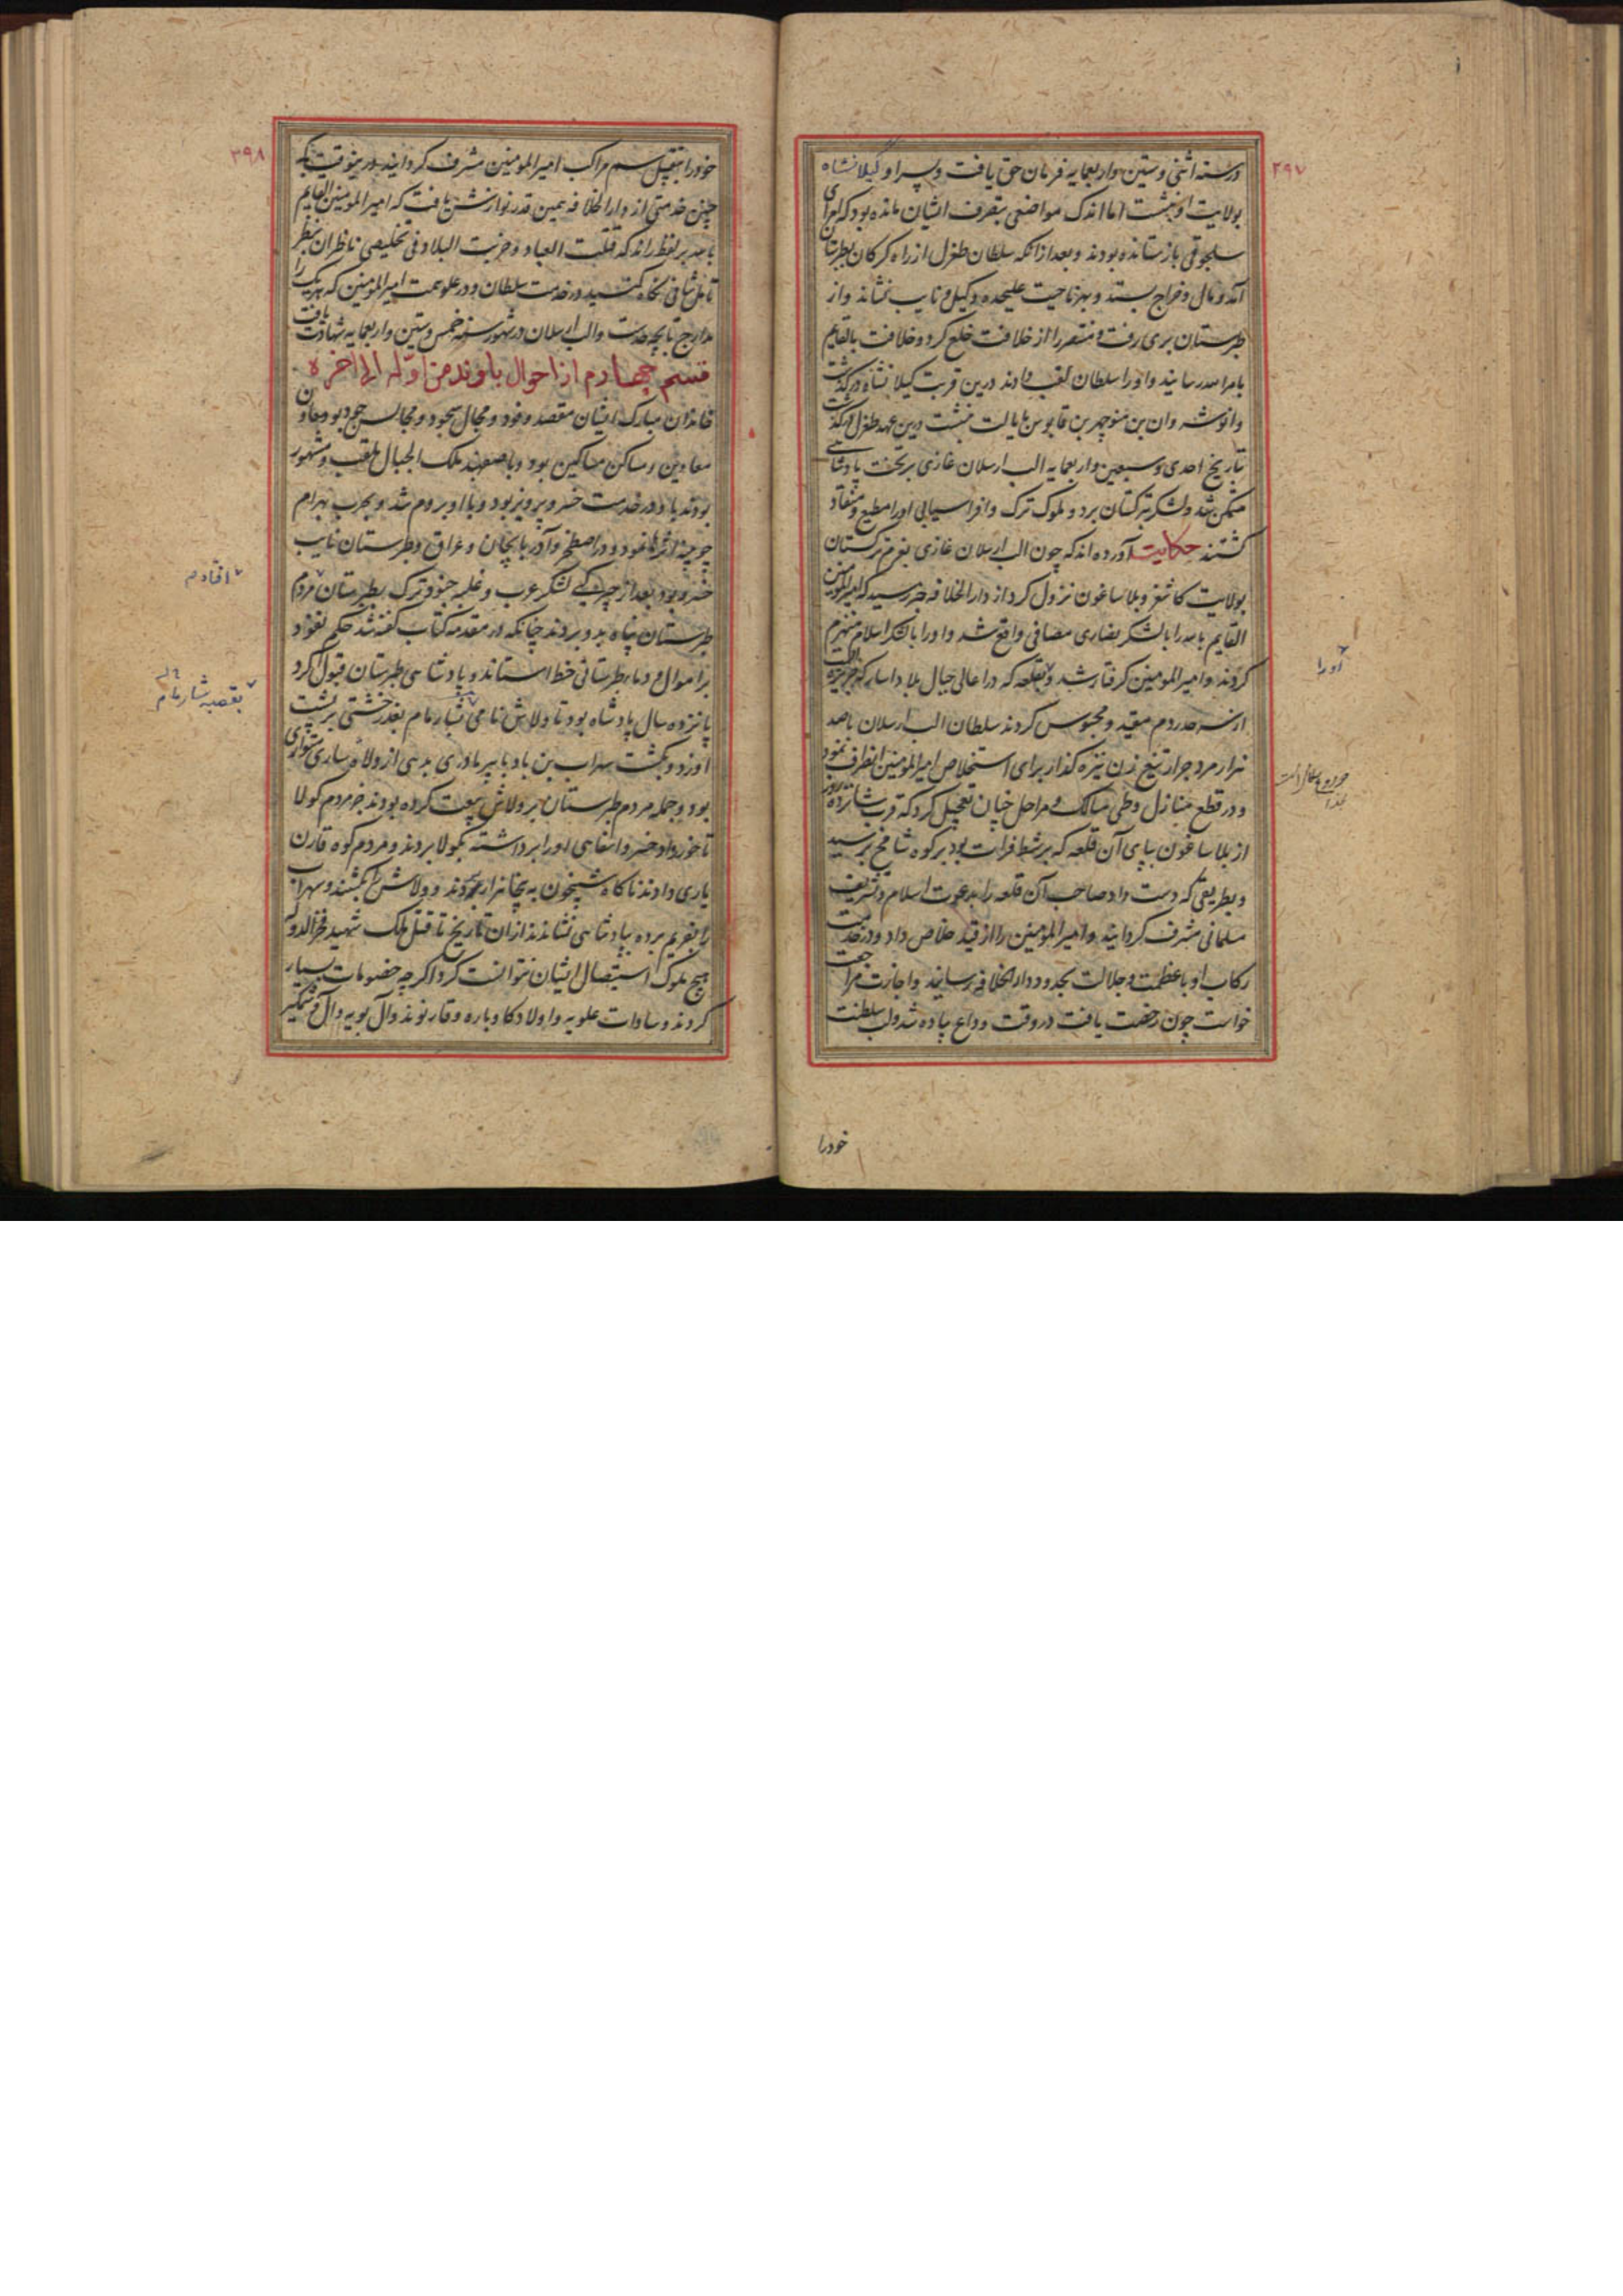 ۳۹۷
در سنه اثنی و ستین و اربعمایه فرمان حق یافت و پسر او کیلانشاه
بولایت او بنشست اما اندک مواضعی بتصرف ایشان مانده بود که امرای
سلجوقی باز ستانده بودند و بعد از انکه سلطان طغرل از راه کرکان بطبرستان
آمد و مال و خراج بستد و بهر ناحیت علیحده وکیل و نایب نشاند و از
طبرستان بری رفت و منتصر را از خلافت خلع کرد و خلافت بالقایم
بامرالله رسانید و او را سلطان لقب دادند درین قربت کیلانشاه درکذشت
وانوشه وان بن منوچهر بن قابوس بایالت بنشست درین عهد طغرل درکذشت
بتاریخ احدی و سبعین و اربعمایه الب ارسلان غازی بر تخت پادشاهی
متمکن شد و لشکر بترکستان برد و ملوک ترک و افراسیابی او را مطیع و منقاد
کشتند حکایت آورده اند که چون الب ارسلان غازی بعزم ترکستان
بولایت کاشغر و بلاساغون نزول کرد از دارالخلافه خبر رسید که امیرالمومنین
القایم بامرالله را با لشکر نصاری مصافی واقع شد و او را با لشکر اسلام منهزم
کردند و امیرالمومنین کرفتار شد و بقلعه که در اعالی جبال بلاد
مقید و محبوس کردند سلطان الب ارسلان باصد
هزار مرد جرار تیغ زن نیزه کذار برای استخلاص امیرالمومنین انطرف نمود
و در قطع منازل و طی مسالک و مراحل چنان تعجیل کرد که قرب شانزده روز
از بلاساغون بپای آن قلعه که بر شط فرات بود بر کوه شامخ برسید
و بطریقی که دست داد صاحب آن قلعه را بدعوت اسلام و تشریف
مسلمانی مشرف کردانید و امیرالمومنین را از قید خلاص داد و در خدمت
رکاب او با عظمت و جلالت بحدود دارالخلافه رسانید و اجازت مراجعت
خواست چون رخصت یافت در وقت وداع پیاده شد و لب سلطنت
اورا
خودرا
۳۹۸
خود را بتقبیل سم مراکب امیرالمومنین مشرف کردانید درینوقت بکه
چنین خدمتی از دارالخلافه همین قدر نوازش یافت که امیرالمومنین القایم
بامرالله بر لفظ راند که قتلت العباد و خربت البلاد فی تخلیصی ناظران بنظر
تامل شافی نکاه کنید در خدمت سلطان و در علو همت امیرالمومنین که هریک را
مدارج تا بچه حدست والب ارسلان در شهور سنه خمس و ستین و اربعمایه شهادت یافت
قسم چهارم از احوال باوند من اوله الی اخره
خاندان مبارک ایشان مقصد وفود و مجال سجود و مجالس جود بود و معاون
معادین و مساکن مساکین بود و باصفهبد ملک الجبال ملقب و مشهور
بودند باو در خدمت خسرو پرویز بود و با او بروم شد و بحرب بهرام
چوبینه اثرها نمود و در اصطخر و آذربایجان و عراق و طبرستان نایب
خسرو بود بعد از چیرکی لشکر عرب و غلبه جنود ترک بطبرستان مردم
طبرستان پناه بدو بردند چنانکه در مقدمه کتاب کفته شد حکم نفوذ
بر اموال و دماء طبرستانی خط استاند و پادشاهی طبرستان قبول کرد
پانزده سال پادشاه بود تا ولاش نامی بشارمام بغدر خشتی بر پشت
او زد و بکشت سهراب بن باو با پیر مادری بدهی از ولاة ساری متواری
بود و جمله مردم طبرستان بر ولاش بیعت کرده بودند جز مردم کولا
تا خورداد خسرو او را برداشته بکولا بردند و مردم کوه قارن
یاری دادند ناکاه شبیخون به پنجاهزار بردند و ولاش را بکشتند و سهراب
را بفریم برده بپادشاهی نشاندند از ان تاریخ تا قتل ملک شهید فخرالدوله
هیچ ملوک استیصال ایشان نتوانست کرد اکرچه خصومات بسیار
کردند و سادات علویه و اولاد کاوباره و قارنوند و آل بویه و آل وشمکیر
افتادم
بقصبه شارمام